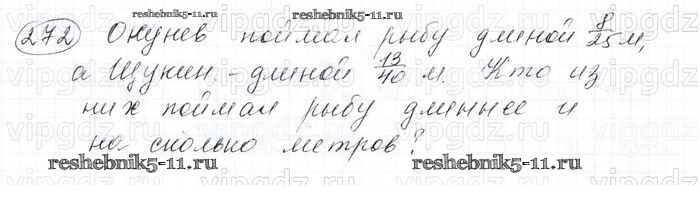 reshebnik5-11.ru
272 Окунев поймал рыбу длиной 8/25 м,
а Щукин - длиной 13/40 м. Кто из
них поймал рыбу длиннее и
на сколько метров?
reshebnik5-11.ru reshebnik5-11.ru
vipgdz.ru vipgdz.ru vipgdz.ru vipgdz.ru